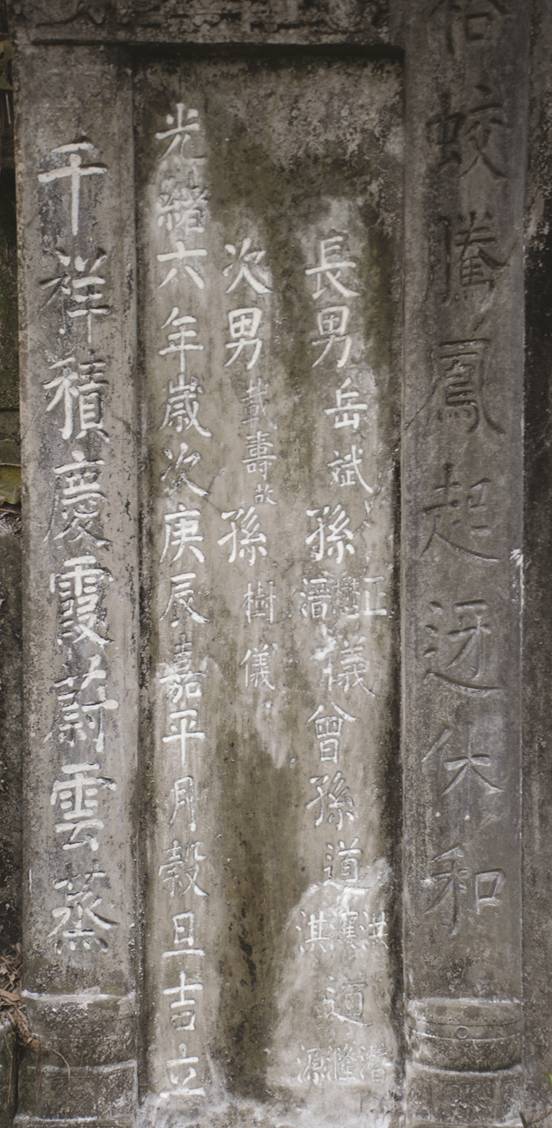 蛟騰鳳起迓休和
長男岳斌孫正儀曾孫道洪淇道源
次男載壽故孫樹儀
光緒六年歲次庚辰嘉平月穀旦吉立
千祥積慶霞蔚雲蒸